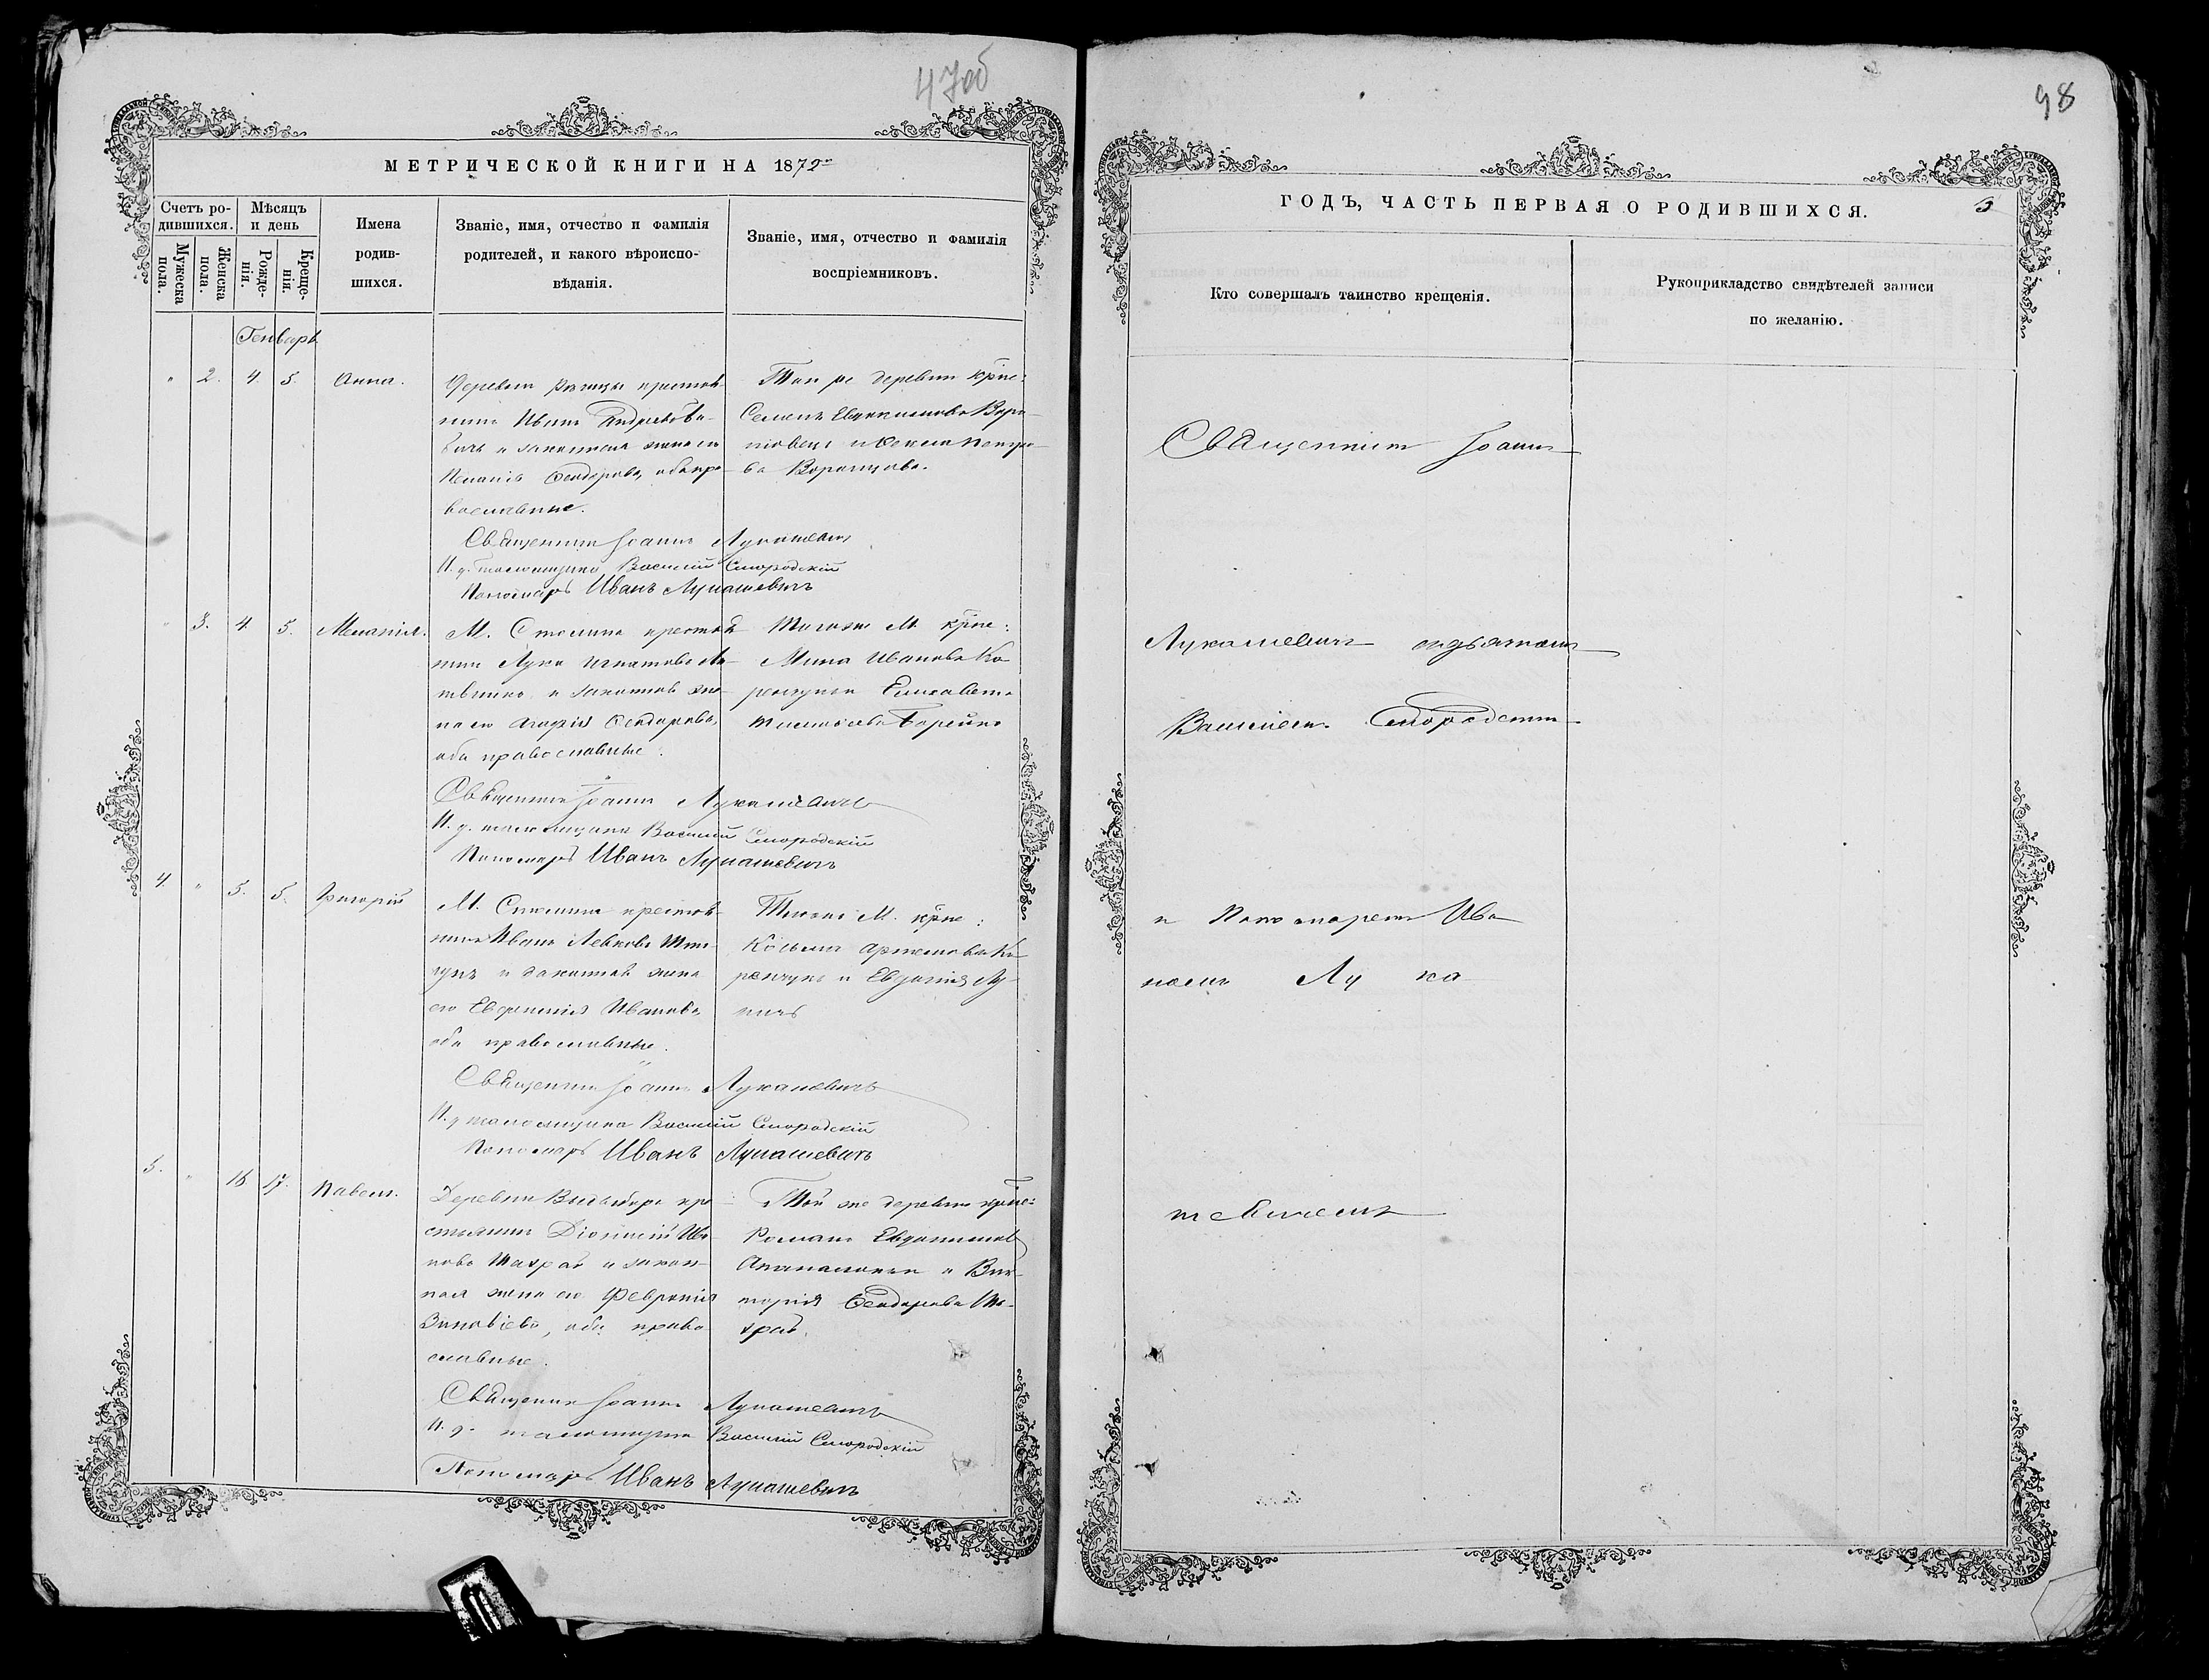 47об
МЕТРИЧЕСКОЙ КНИГИ НА 1872
Счетъ ро-
дившихся.
Мѣсяцъ
и день
Мужеска
пола.
Женска
пола.
Рожде-
нія.
Креще-
нія.
Имена
родив-
шихся.
Званіе, имя, отчество и фамилія
родителей, и какого вѣроиспо-
вѣданія.
Званіе, имя, отчество и фамилія
воспріемниковъ.
Генварь
" 2. 4. 5. Анна.
Деревни крестья-
нинъ Иванъ Андреевъ
и законная жена его
Меланія Ѳеодорова, оба пра-
вославные.
Той же деревни крке:
Семенъ Евдокимовъ Воро-
новецъ и Ксенія Петро-
ва
Священникъ Іоаннъ Лукашевичъ
И. д. псаломщика Василій Смородскій
Пономарь Иванъ Лукашевичъ
" 3. 4. 5. Меланія.
М. Столина крестья-
нинъ Лука Игнатовъ Ли-
твинко и законная же-
на его Агафія Ѳеодорова,
оба православные.
Тогоже М. крке:
Мина Ивановъ Ко-
ренчукъ и Елисавета
Борейко
Священникъ Іоаннъ Лукашевичъ
И. д. псаломщика Василій Смородскій
Пономарь Иванъ Лукашевичъ
4. " 5. 5. Григорій
М. Столина крестья-
нинъ Иванъ Левковъ
и законная жена
его Евфимія Иванова,
оба православные.
Тогоже М. крке:
Козьма Артемовъ Ко-
ренчукъ и Евдокія Лу-
Священникъ Іоаннъ Лукашевичъ
И. д. псаломщика Василій Смородскій
Пономарь Иванъ Лукашевичъ
5. " 16 17. Павелъ.
Деревни Видибора кре-
стьянинъ Діонисій Ива-
новъ Шахрай и закон-
ная жена его Февронія
Зиновіева, оба право-
славные.
Той же деревни крке:
Романъ Евдокимовъ
и Вик-
торія Ѳеодорова Ша-
храй.
Священникъ Іоаннъ Лукашевичъ
И. д. псаломщика Василій Смородскій
Пономарь Иванъ Лукашевичъ
98
ГОДЪ, ЧАСТЬ ПЕРВАЯ О РОДИВШИХСЯ.
3
Кто совершалъ таинство крещенія.
Рукоприкладство свидѣтелей записи
по желанію.
Священникъ Іоаннъ
Лукашевичъ съ дьячкомъ
Василіемъ Смородскимъ
и Пономаремъ Ива
номъ Лу ка
шевичемъ